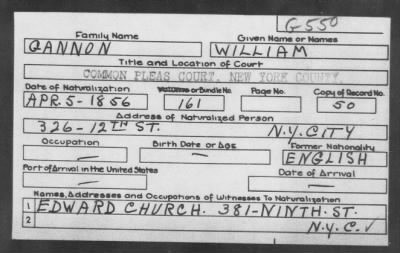 G550
Family Name Given Name or Names
GANNON WILLIAM
Title and Location of Court
COMMON PLEAS COURT, NEW YORK COUNTY.
Date of Naturalization Volume or Bundle No. Page No. Copy of Record No.
APR. 5-1856 161 50
Address of Naturalized Person
326-12TH ST. N.Y. CITY
Occupation Birth Date or Age Former Nationality
— — ENGLISH
Port of Arrival in the United States Date of Arrival
— —
Names, Addresses and Occupations of Witnesses To Naturalization
1 EDWARD CHURCH. 381-NINTH. ST.
2 N.Y.C. √